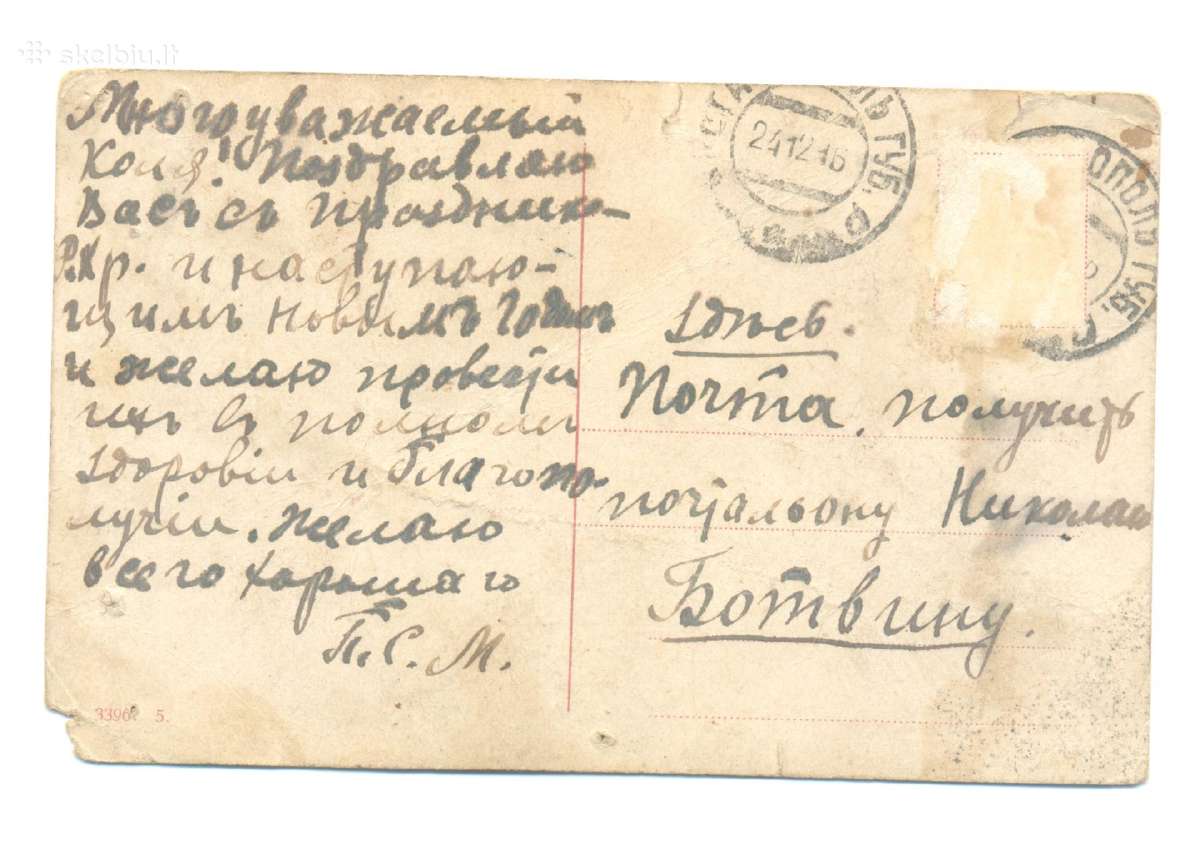 skelbiu.lt
Многоуважаемый
Коля! Поздравляю
Васъ съ праздник-
Р.Хр. и наступаю-
щимъ Новымъ Годомъ
и желаю провести
ихъ въ полномъ
здоровіи и благопо-
лучіи. Желаю
всего хорошаго
П. С. М.
3396 5.
24 12 16
ЛЬ ГУБ.
ОПОЛЬ ГУБ.
Здѣсь.
Почта, получить
почтальону Николаю
Ботвину.